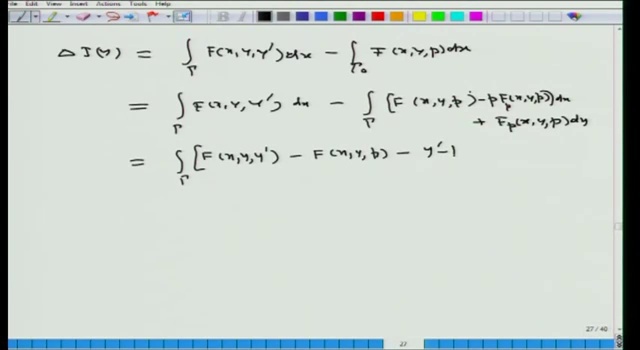 File View Insert Actions Tools Help
Δ J(y) = ∫_Γ F(x,y,y')dx - ∫_Γ₀ F(x,y,p)dx
= ∫_Γ F(x,y,y') dx - ∫_Γ [F(x,y,p) - pF_p(x,y,p)]dx
+ F_p(x,y,p)dy
= ∫_Γ [F(x,y,y') - F(x,y,p) - y'-1
27 / 40
27